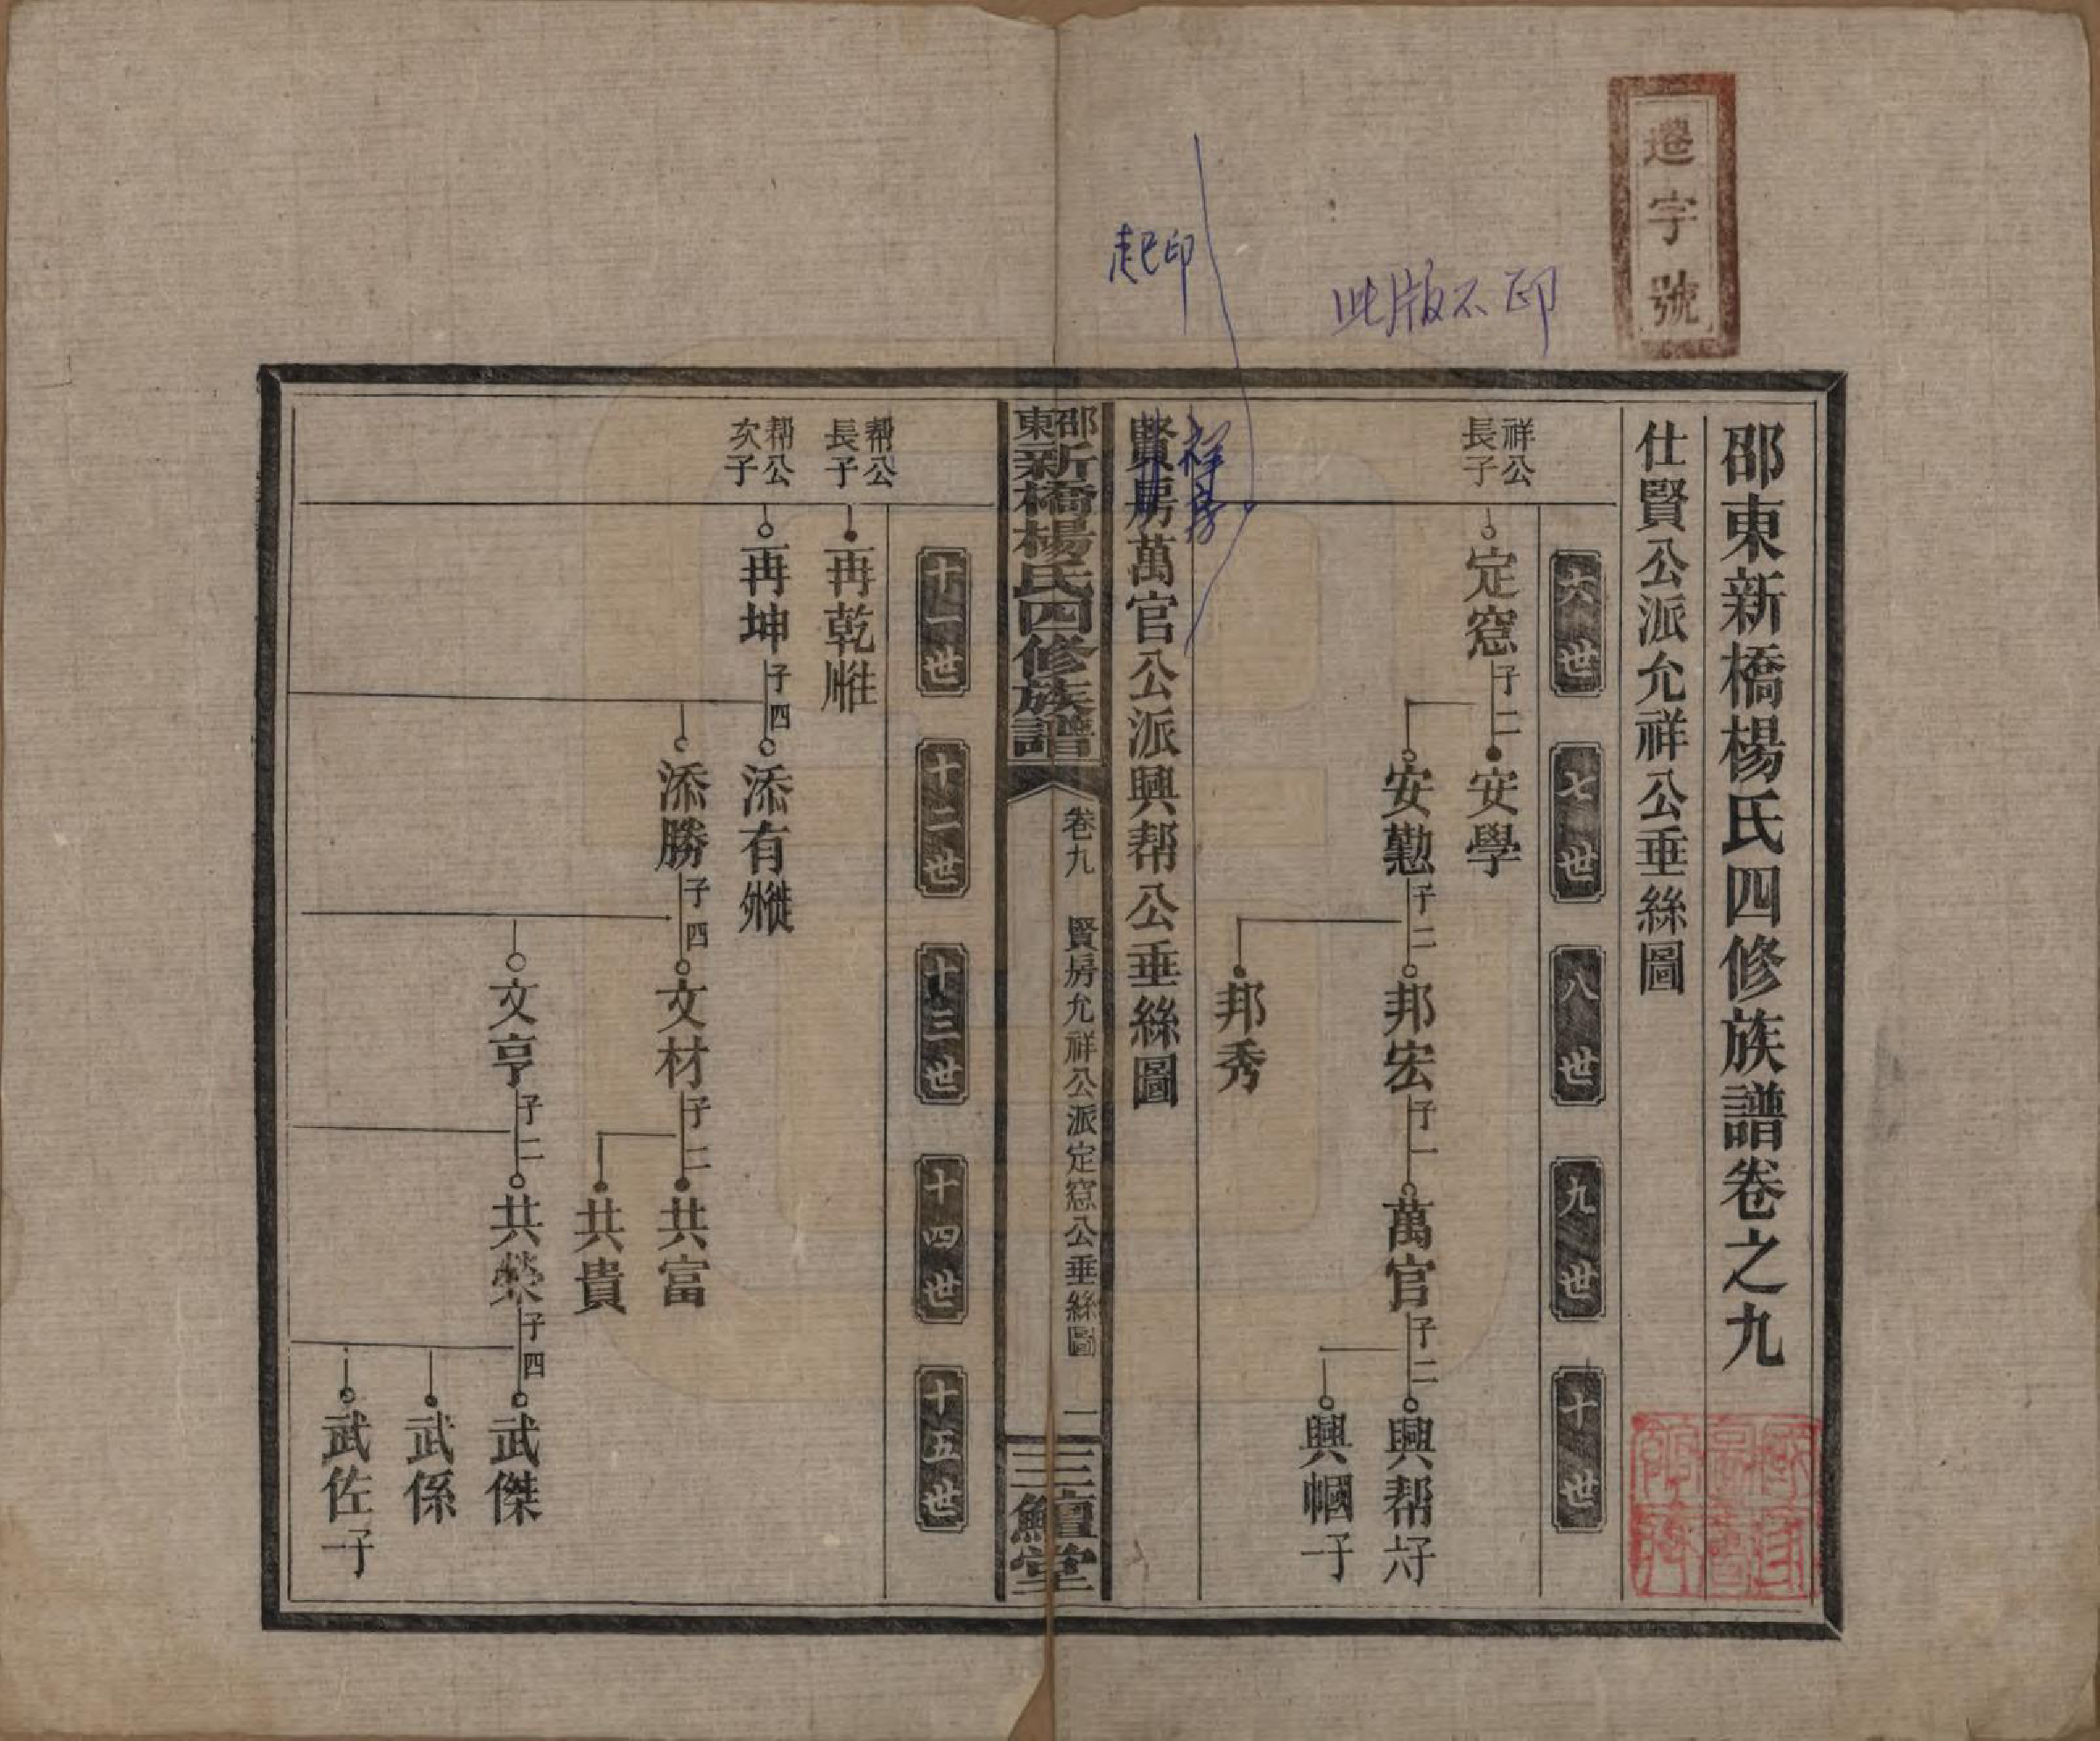 邵東新橋楊氏四修族譜卷之九
仕賢公派允祥公垂絲圖
六世
七世
八世
九世
十世
祥公長子
定窓 子二
安學
安懃 子二
邦宏 子一
萬官 子二
興帮 六子
邦秀
興幗 一子
賢房萬官公派興帮公垂絲圖
邵東新橋楊氏四修族譜
卷九
賢房允祥公派定窓公垂絲圖
一
三鱣堂
十一世
十二世
十三世
十四世
十五世
帮公長子
再乾
帮公次子
再坤 子四
添有
添勝 子四
文材 子二
共富
共貴
文亨 子二
共榮 子四
武傑
武係
武佐 一子
遷字號
此版不印
起印
祥房